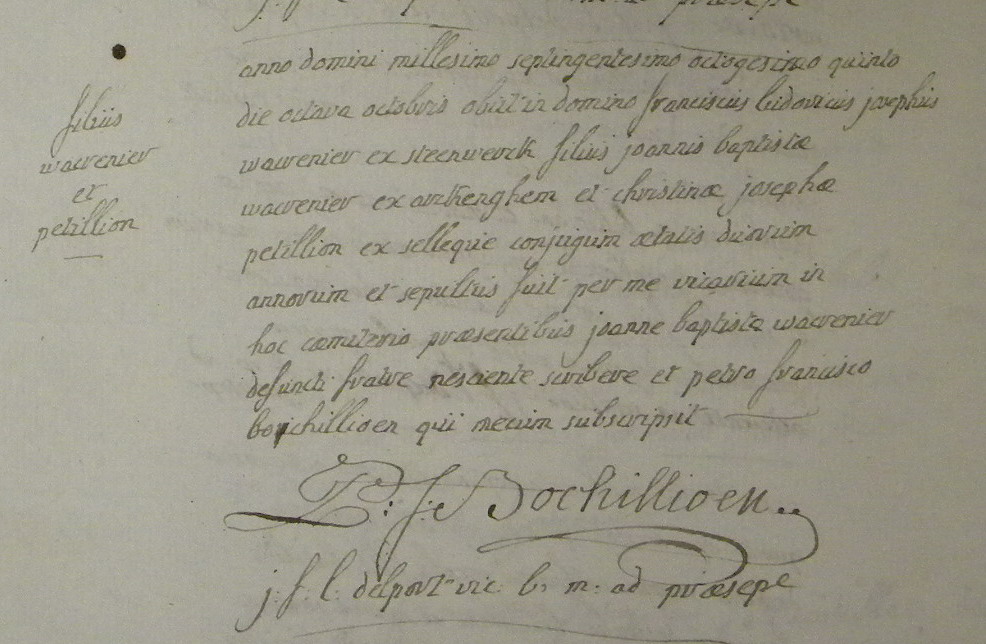 præsepe
filius
wacrenier
et
petillion
anno domini millesimo septingentesimo octogesimo quinto
die octava octobris obiit in domino franciscus ludovicus josephus
wacrenier ex steenwerck filius joannis baptistæ
wacrenier ex and christinæ josephæ
petillion ex selleque conjugum ætatis duorum
annorum et sepultus fuit per me vicarium in
hoc cœmiterio præsentibus joanne baptista wacrenier
defuncti fratre nesciente scribere et petro francisco
bochillioen qui mecum subscripsit
P: f: Bochillioen..
j. f. l. delport vic: b. m: ad præsepe